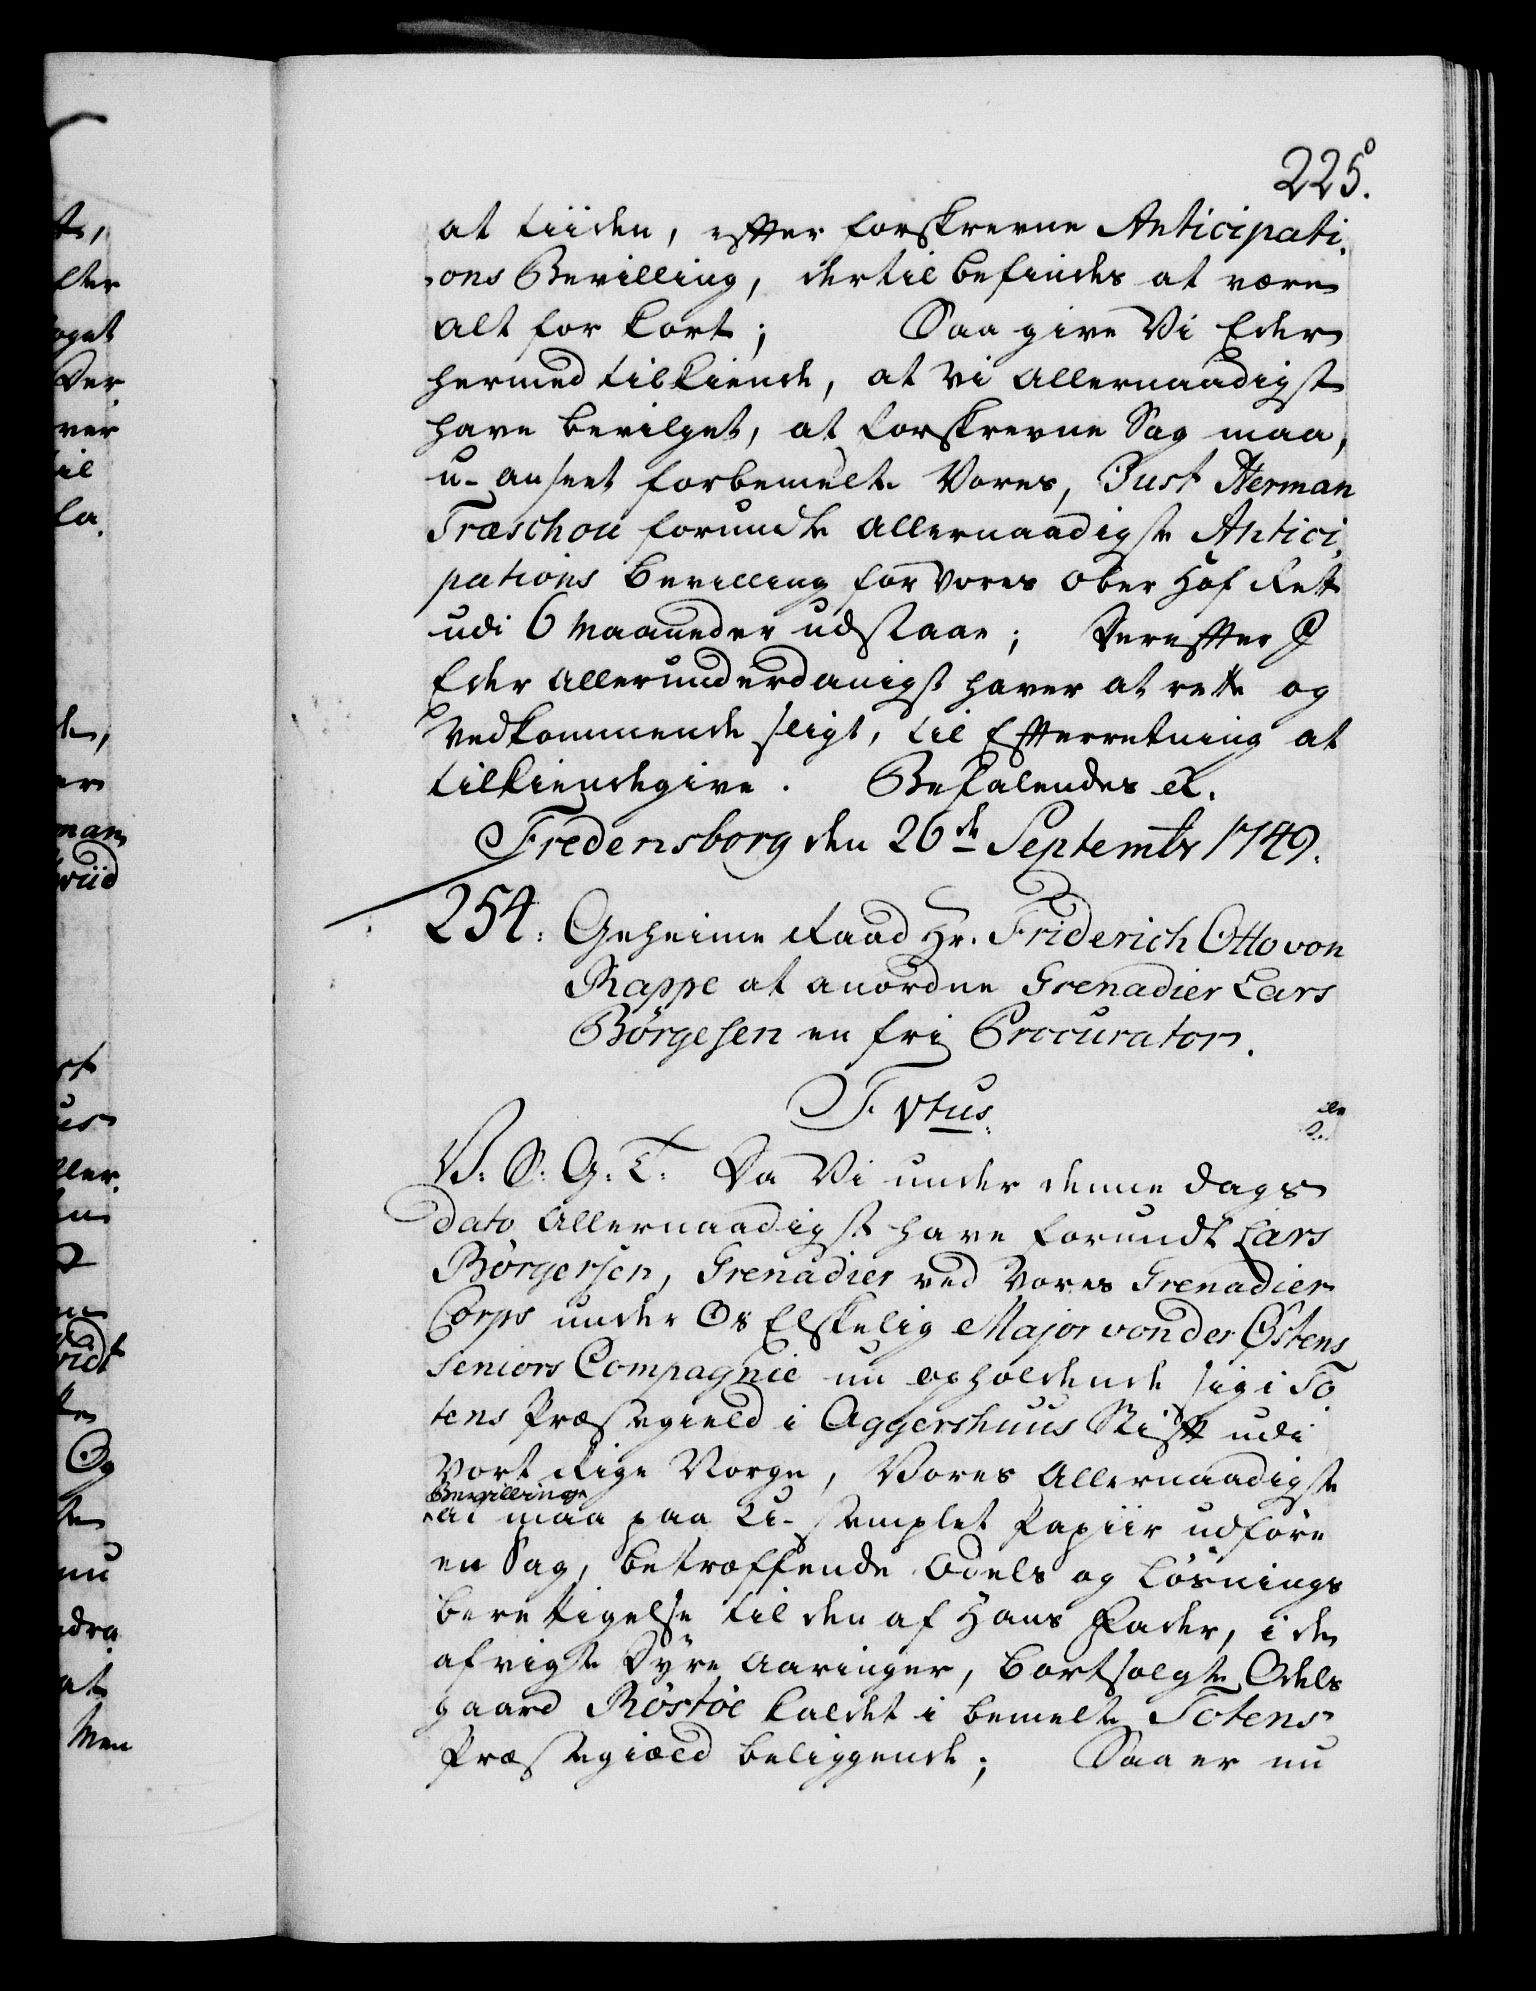 225.
at tiiden, efter forskrevne Anticipati-
ons Bevilling, dertil befindes at være
alt for kort; Saa give Vi Eder
hermed tilkiende, at vi allernaadigst
have bevilget, at forskrevne Sag maa,
u-anseet forbemelte Vores, Just Herman
Træschou forundte allernaadigste Antici-
pations Bevilling for Vores Ober Hof Rett
udi 6 Maaneder udstaae; Derefter I
Eder allerunderdanigst haver at rette og
Vedkommende sligt, til Efterretning at
tilkiendegive. Befalendes etc.
Fredensborg den 26de Septembr 1749.
254. Geheime Raad Hr. Friderich Otto von
Rappe at anordne Grenadier Lars
Börgesen en fri Procurator.
F Vtus.
V. S. G. T. Da Vi under denne Dags
dato allernaadigst have forundt Lars
Börgersen, Grenadier ved Vores Grenadier
Corps under Os Elskelig Major von der Østens
seniors Compagnie nu opholdende sig i To
tens Præstegield i Aggershuus Stift udi
Vort Rige Norge, Vores Allernaadigste
Bevilling
at maa paa U-stemplet Papiir udföre
en Sag, betreffende Odels og Lösnings
berettigelse til den af Hans Fader, i de
afvigte Dyre Aaringer, bortsolgte Odels
gaard Röstöe kaldet i bemelte Totens
Præstegiæld beliggende; Saa er nu